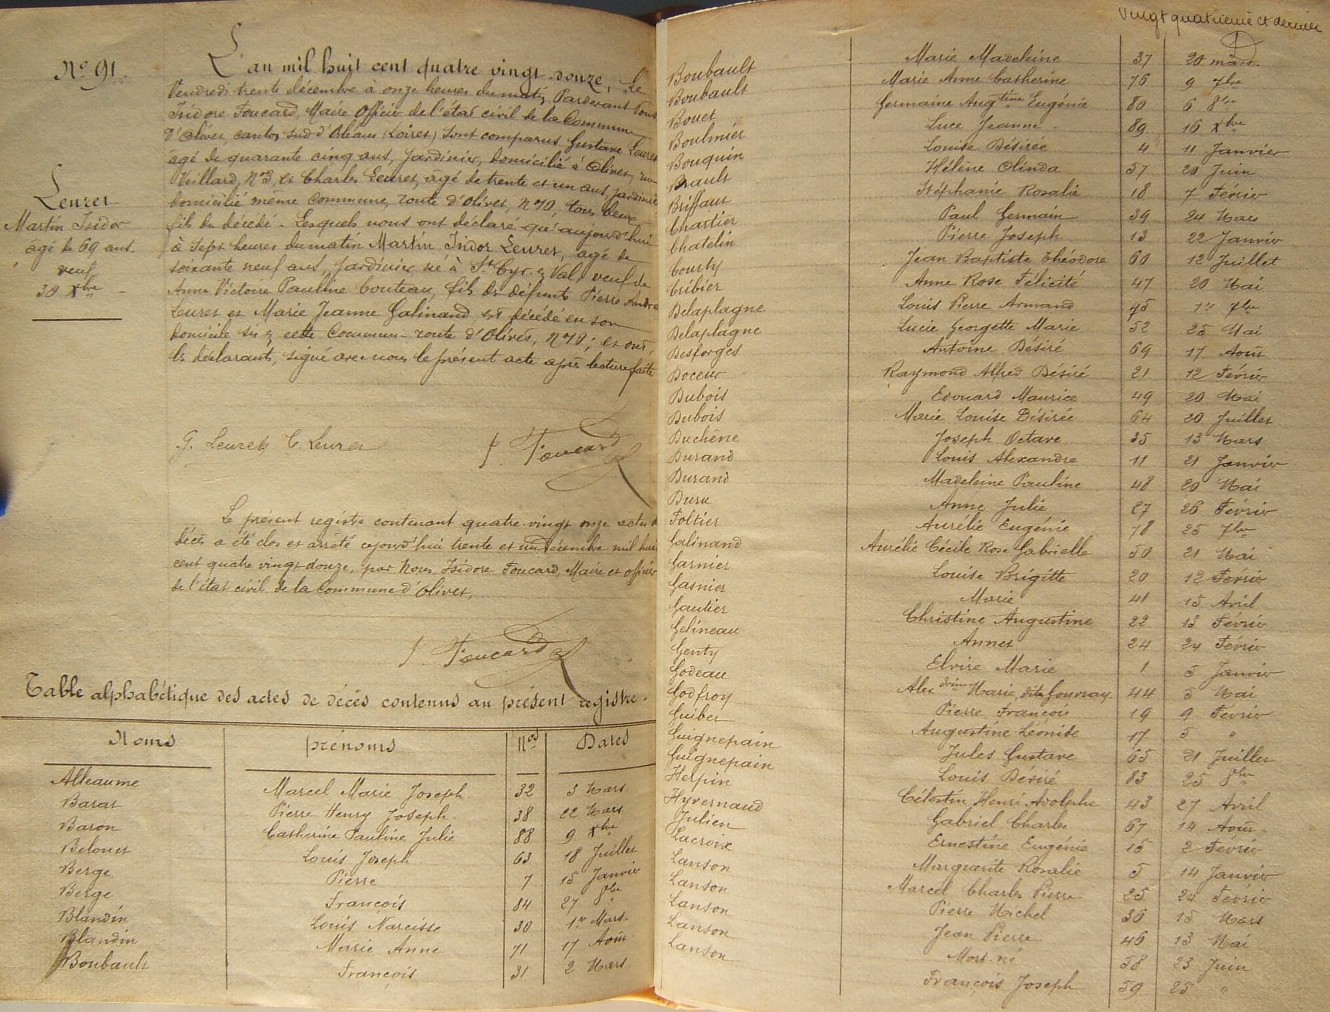 No 91.
Leuret
Martin Isidor
agé de 69 ans.
veuf
30 Xbre
L'an mil huit cent quatre vingt-douze, le
Vendredi trente décembre à onze heures du matin, Pardevant Nous
Isidore Foucard, Maire Officier de l'état civil de la Commune
d'Olivet, canton sud d'Orléans (Loiret) sont comparus Gustave Leuret
agé de quarante cinq ans, Jardinier, domicilié à Olivet, rue
Vuillard, No 3, et Charles Leuret, agé de trente et un ans, jardinier
domicilié même commune, route d'Olivet, No 70, tous deux
fils du décédé. Lesquels nous ont déclaré qu'aujourd'hui
à sept heures du matin Martin Isidor Leuret, agé de
soixante neuf ans, Jardinier né à St Cyr en Val, veuf de
Anne Victoire Pauline Couteau, fils de défunts Pierre André
Leuret et Marie Jeanne Galinand est décédé en son
domicile sis en cette Commune route d'Olivet, No 70; et ont,
les déclarants, signé avec nous le présent acte après lecture faite
G. Leuret C. Leuret I Foucard
Le présent registre contenant quatre-vingt onze actes de
décès a été clos et arrêté aujourd'hui trente et un décembre mil huit
cent quatre vingt douze, par Nous, Isidore Foucard, Maire et officier
de l'état civil de la Commune d'Olivet,
I Foucard
Table alphabétique des actes de décès contenus au présent registre.
Noms prénoms Nos Dates
Alleaume Marcel Marie Joseph 32 3 Mars
Barat Pierre Henry Joseph 38 22 Mars
Baron Catherine Pauline Julie 88 9 Xbre
Belouet Louis Joseph 63 18 Juillet
Berge Pierre 7 15 Janvier
Berge François 84 27 8bre
Blandin Louis Narcisse 30 1er Mars
Blandin Marie Anne 71 17 Août
Boubault François 31 2 Mars
Vingt quatrième et dernier
Boubault Marie Madeleine 37 20 mars
Boubault Marie Anne Catherine 76 9 7bre
Bouet Germaine Augtine Eugénie 80 6 8bre
Boulmier Luce Jeanne 89 16 Xbre
Bouquin Louise Désirée 4 11 Janvier
Brault Hélène Olinda 57 20 Juin
Briffaut Stéphanie Rosalie 18 7 Février
Chartier Paul Germain 39 24 Mars
Chatelin Pierre Joseph 13 22 Janvier
Courty Jean Baptiste Théodore 60 12 Juillet
Cribier Anne Rose Félicité 47 20 Mai
Delaplagne Louis Pierre Armand 75 1er 7bre
Delaplagne Lucie Georgette Marie 52 25 Mai
Desforges Antoine Désiré 69 17 Août
Doceur Raymond Alfred Désiré 21 12 Février
Dubois Edouard Maurice 49 20 Mai
Dubois Marie Louise Désirée 64 20 Juillet
Duchêne Joseph Octave 35 13 Mars
Durand Louis Alexandre 11 21 Janvier
Durand Madeleine Pauline 48 20 Mai
Anne Julie 27 26 Février
Foltier Aurélie Eugénie 78 25 7bre
Galinand Aurélie Cécile Rose Gabrielle 50 21 Mai
Garnier Louise Brigitte 20 12 Février
Gasnier Marie 41 15 Avril
Gautier Christine Augustine 22 13 Février
Gelineau Annet 24 24 Février
Genty Elvire Marie 1 5 Janvier
Godeau Alexdrine Marie dite Gouvray 44 5 Mai
Godfroy Pierre François 19 9 Février
Guiber Augustine Léonide 17 5 "
Guignepain Jules Gustave 65 21 Juillet
Guignepain Louis Désiré 83 25 8bre
Helpin Célestin Henri Adolphe 43 27 Avril
Hyvernaud Gabriel Charles 67 14 Août
Julien Ernestine Eugénie 15 2 Février
Lacroix Marguerite Rosalie 5 14 Janvier
Lanson Marcel Charles Pierre 25 24 Février
Lanson Pierre Michel 36 15 Mars
Lanson Jean Pierre 46 13 Mai
Lanson Mort né 58 23 Juin
Lanson François Joseph 59 25 "